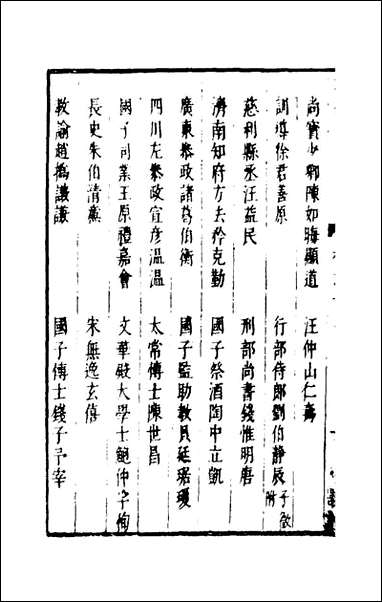 尚寳少卿陳如晦顯道　汪仲山仁壽
訓導徐君善原　行部侍郎劉伯靜辰 子啟附
慈利縣丞汪益民　刑部尚書錢惟明唐
濟南知府方去矜克勤　國子祭酒陶中立凱
廣東叅政諸葛伯衡　國子監助教貝廷琚瓊
四川左叅政宣彦溫溫　太常博士陳世昌
國子司業王原禮嘉會　文華殿大學士鮑仲孚恂
長史朱伯清㢘　宋無逸玄僖
教諭趙撝謙謙　國子博士錢子予宰